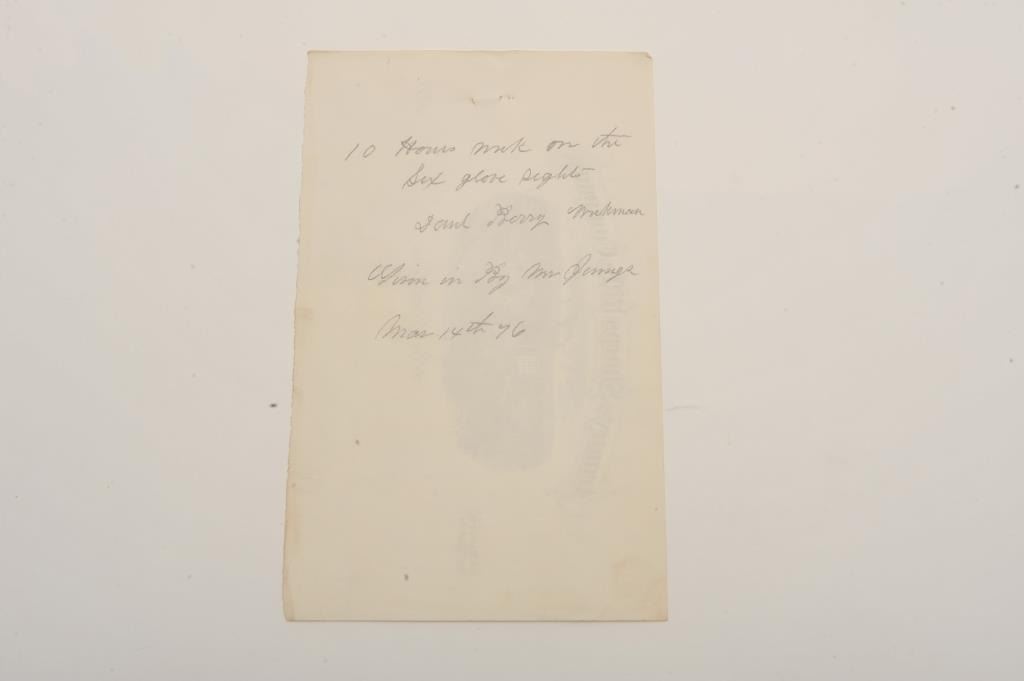 10 Hours work on the
Six glove sights
Saul Berry Workman
Given in By Mr Jenings
Mar 14th 76